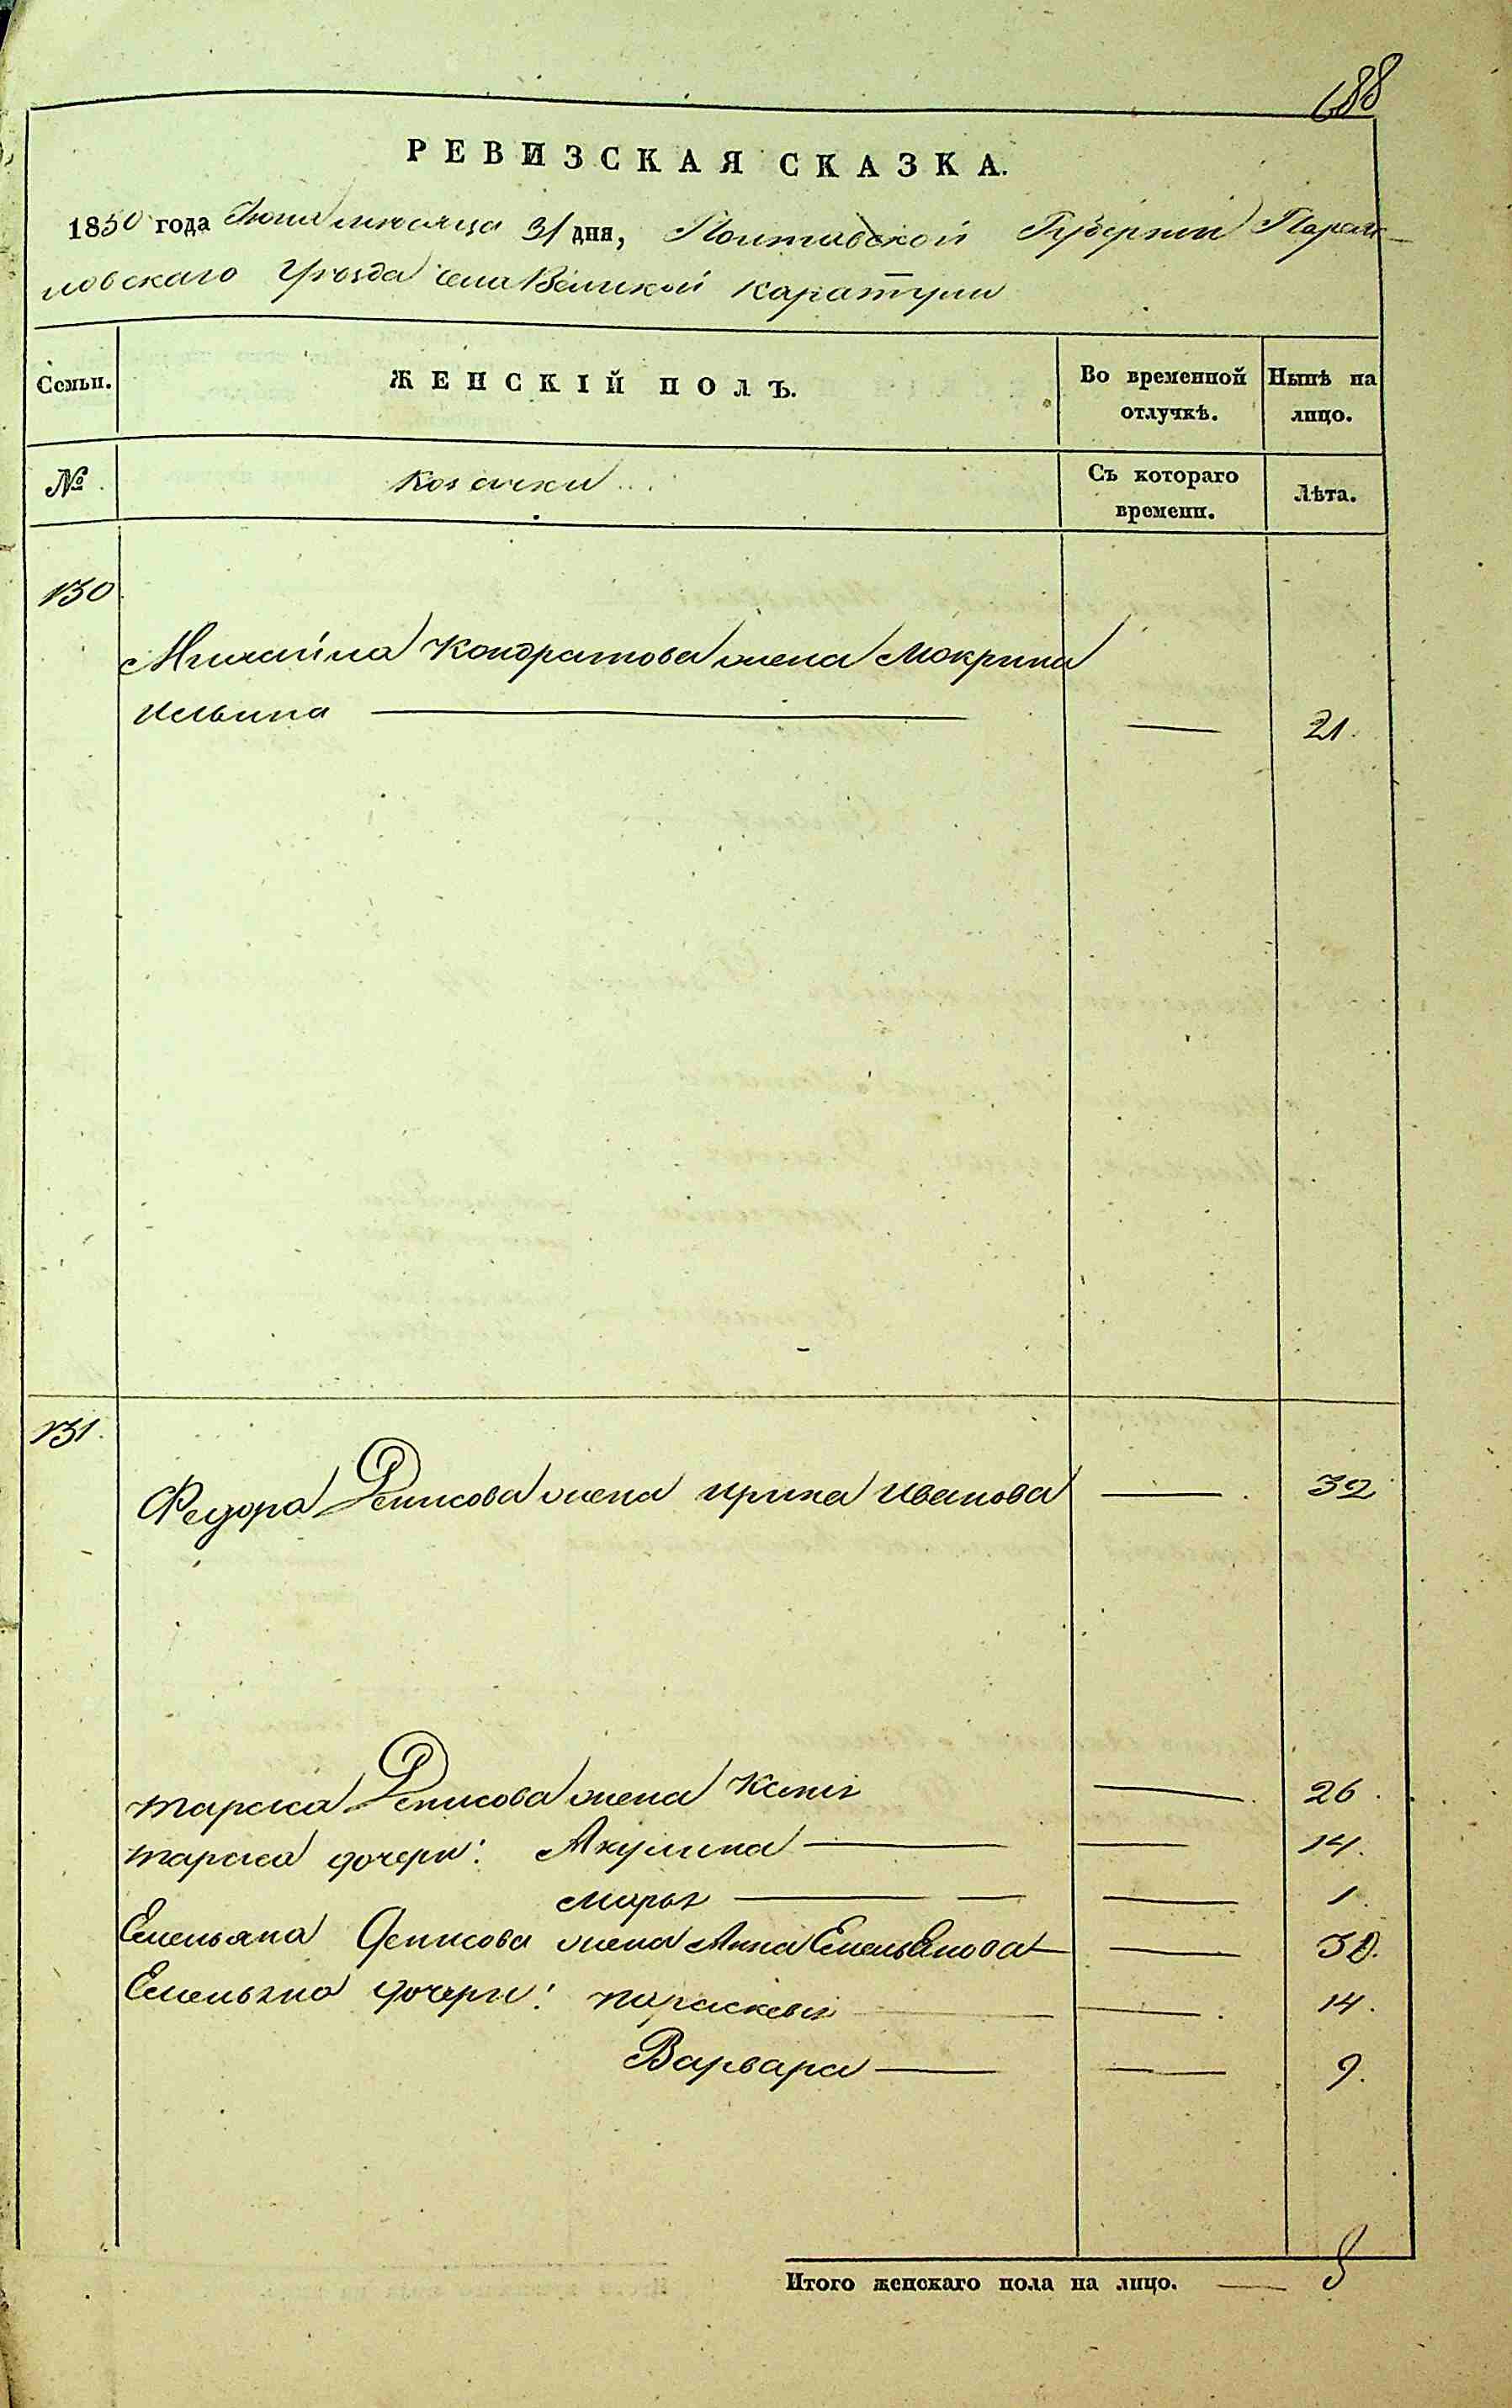 688
РЕВИЗСКАЯ СКАЗКА.
1850 года Июля месяца 31 дня, Полтавской Губернии Переяс-
ловскаго Уезда села Великой Каратули
Семьи.
ЖЕНСКІЙ ПОЛЪ.
Во временной отлучкѣ.
Нынѣ на лицо.
№
Козачки
Съ котораго времени.
Лѣта.
130
Михайла Кондратова жена Мокрина
Ильина — — 21.
131.
Федора Денисова жена Ирина Иванова — 32
Тараса Денисова жена — 26.
Тараса дочери: Акулина — — 14.
Марья — — — 1.
Емельяна Денисова жена Анна Емельянова — 30.
Емельяна дочери: Параскевия — — 14.
Варвара — — 9.
Итого женскаго пола на лицо. — 8